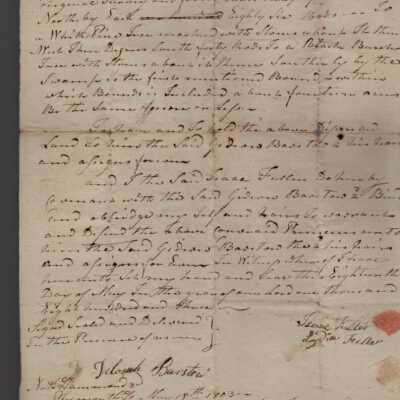 North by East Eighty Six Rods — To
a White Pine Tree marked with Stones about it then
West Three Degrees South forty Rods To a Beach
Tree with Stones about it Thence Southerly by the
Swamp to the first mentioned Bound within
which Bounds is Included about fourteen acres
Be the Same more or Less
To Have and To hold the above
Land to him the Said Gideon Barstow 2d his heirs
and assigns forever
and I the Said Isaac Fuller Do hereby
Covenant with the Said Gideon Barstow 2d Bind
and my Self and heirs to warrant
and Defend the above Conveyed Premises unto
him the Said Gideon Barstow the 2d his heirs
and assigns for Ever In Witness where of I have
hereunto Set my hand and Seal this Eighteenth
Day of May In the year of our Lord one thousand
Eight hundred and three
Signed Sealed and Delivered
In the Presence of us
Isaac Fuller
Lydia Fuller
Deborah Barstow
Hammond
Plymouth Ss May 18th 1803